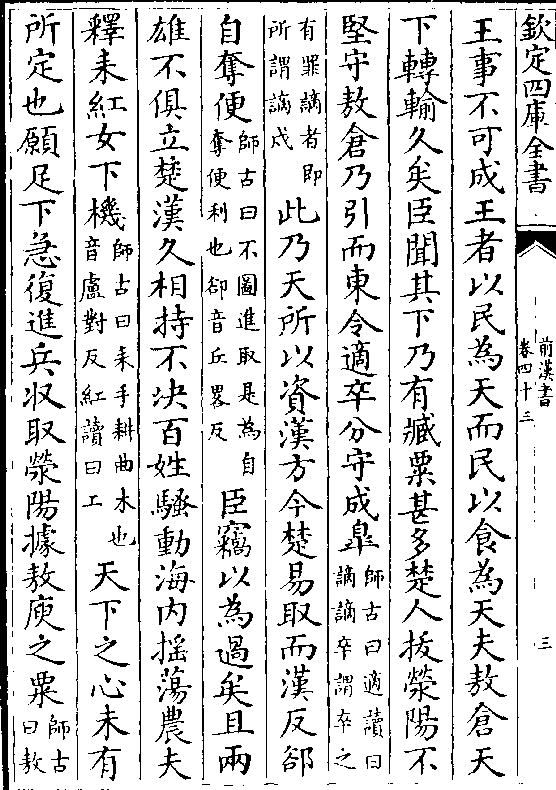 欽定四庫全書
前漢書
卷四十三
三
王事不可成王者以民為天而民以食為天夫敖倉天
下轉輸久矣臣聞其下乃有臧粟甚多楚人拔滎陽不
堅守敖倉乃引而東令適卒分守成臯師古曰適讀曰謫謫卒謂卒之
有罪謫者即所謂謫戍此乃天所以資漢方今楚易取而漢反郤
自奪便師古曰不圖進取是為自奪便利也郤音丘畧反臣竊以為過矣且兩
雄不俱立楚漢久相持不決百姓騷動海内揺蕩農夫
釋耒紅女下機師古曰耒手耕曲木也音盧對反紅讀曰工天下之心未有
所定也願足下急復進兵収取滎陽據敖庾之粟師古曰敖